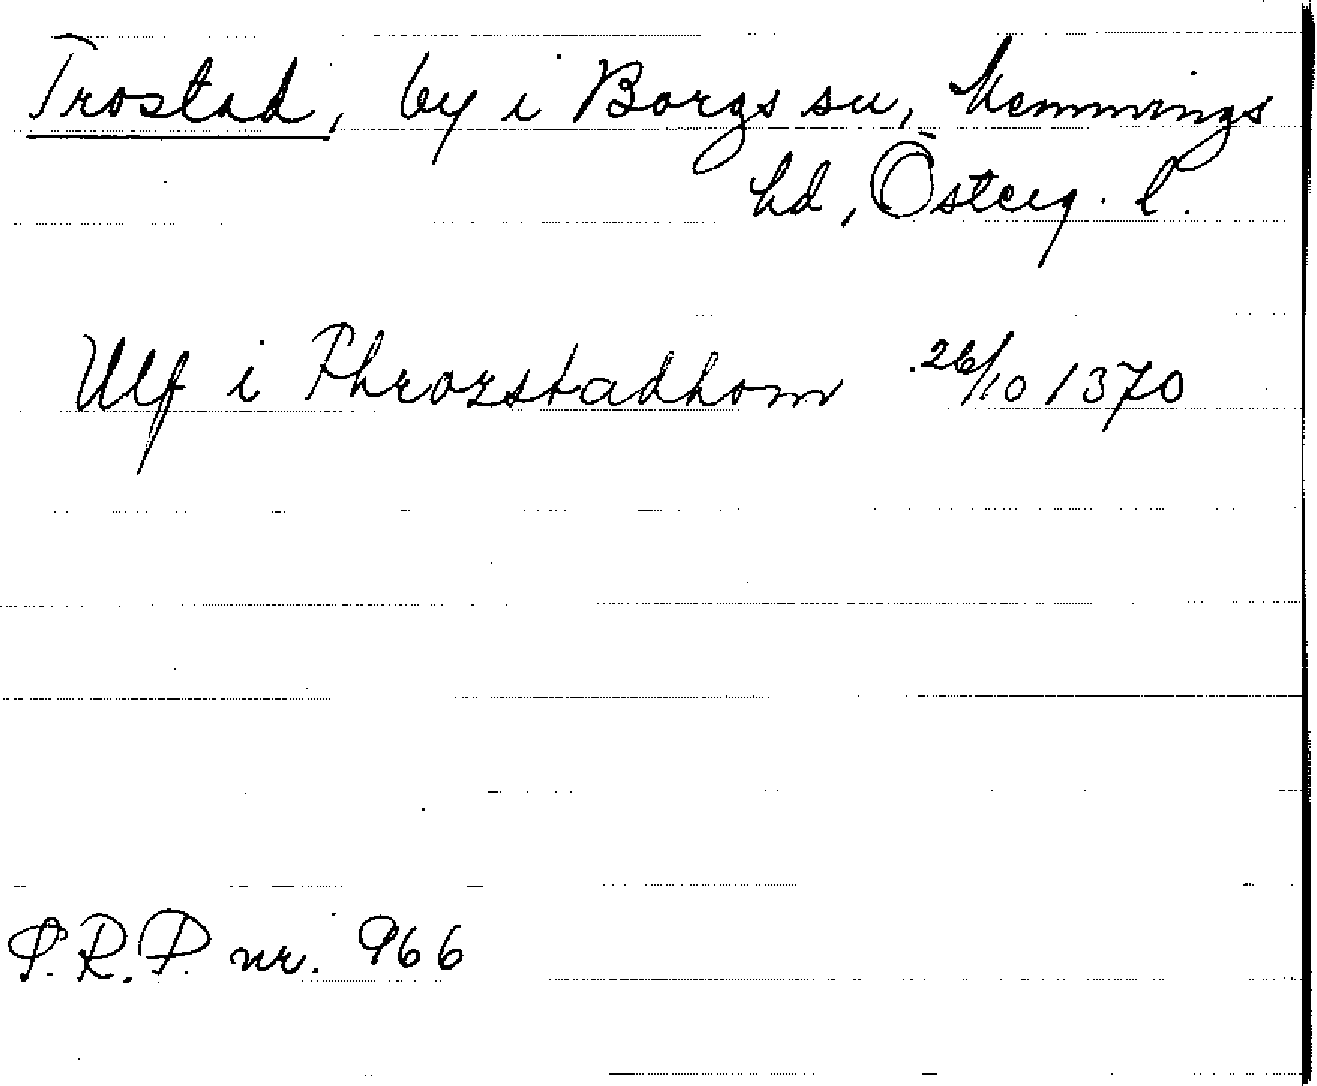 Trostad, by i Borgs sn, Memmings
hd, Österg. l.
Ulf i Throzstadhom 26/10 1370
P.R.P. nr. 966